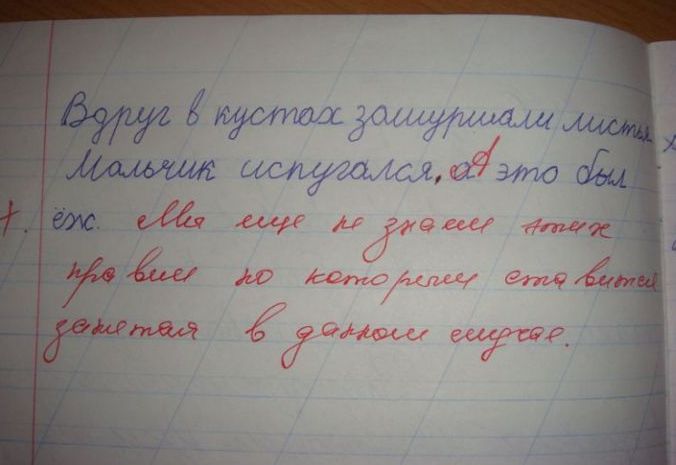 Вдруг в кустах зашуршали листья
Мальчик испугался. аА это был
ёж. Мы еще не знаем этих
правил по которым ставится
запятая в данном случае.